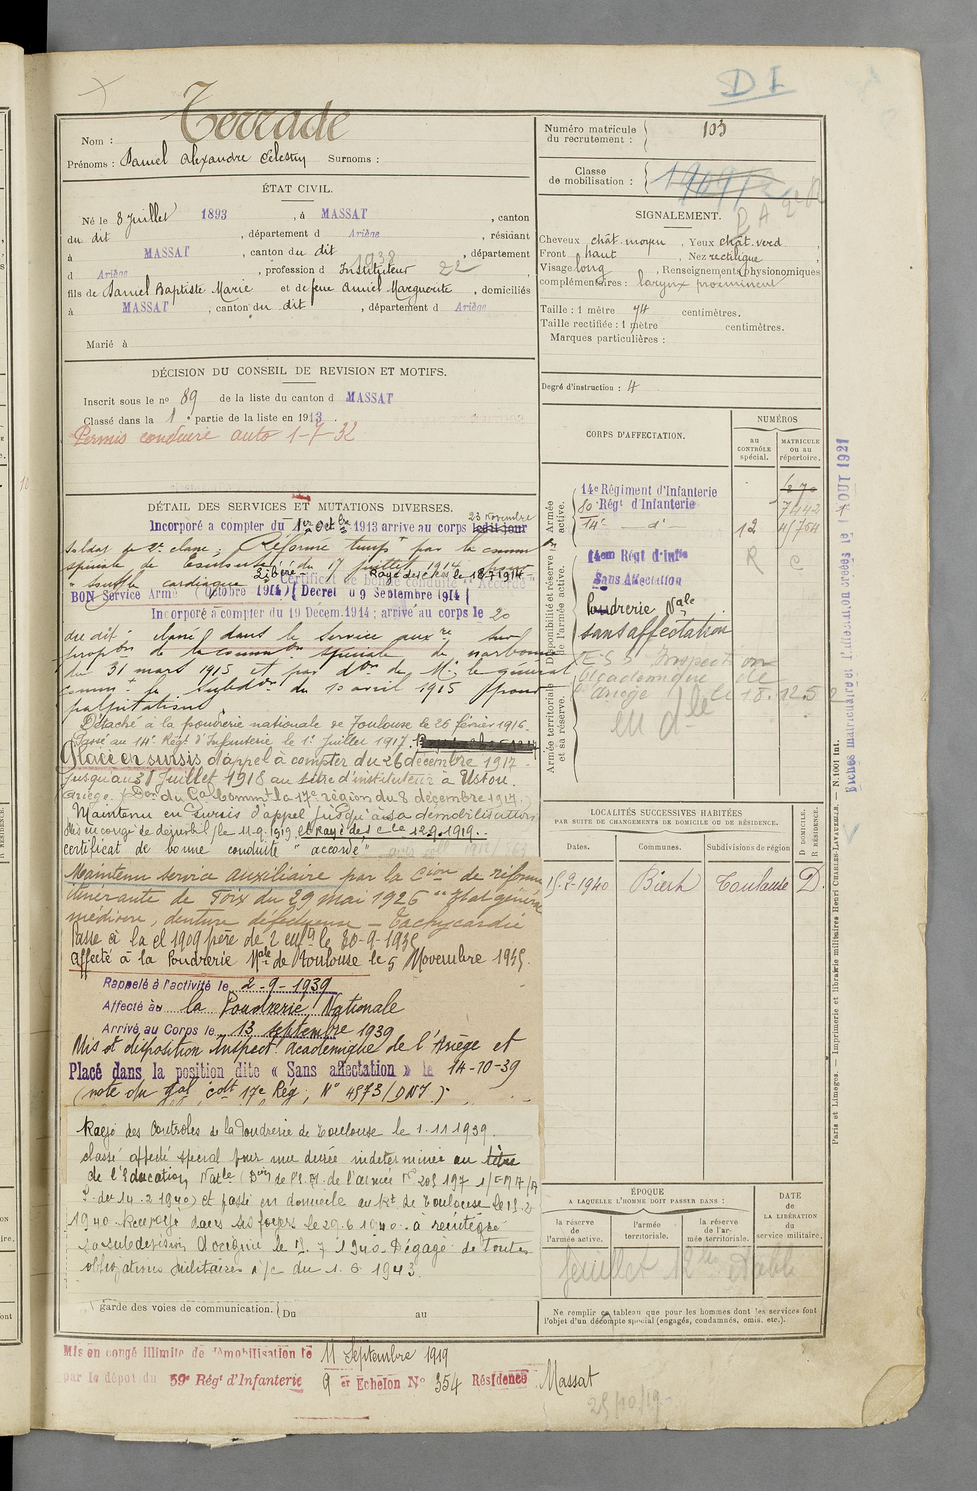 D I
Nom : Terrade
Prénoms : Daniel Alexandre Célestin Surnoms :
ÉTAT CIVIL.
Né le 8 juillet 1893, à MASSAT, canton
du dit, département d Ariège, résidant
à MASSAT, canton du dit, département
1938
d Ariège, profession d Instituteur
fils de Daniel Baptiste Marie et de feue Anniel Marguerite, domiciliés
à MASSAT, canton du dit, département d Ariège
Marié à
DÉCISION DU CONSEIL DE REVISION ET MOTIFS.
Inscrit sous le no 89 de la liste du canton d MASSAT
Classé dans la 1e partie de la liste en 1913.
Permis conduire auto 1-7-32
DÉTAIL DES SERVICES ET MUTATIONS DIVERSES.
23 novembre
Incorporé à compter du 1er Octbre 1913 arrivé au corps ledit jour
soldat de 2e classe ; Réformé tempre par la comm
spéciale de Toulouse du 17 juillet 1914 pour
"souffle cardiaque" Rayé des c^les le 18-7-1914
Certificat de bonne conduite "Accordé"
BON Service Armé (Octobre 1914) (Décret du 9 Septembre 1914)
Incorporé à compter du 19 Décem. 1914 ; arrivé au corps le 20
du dit ; classé dans le service auxre sur
propon de la common spéciale de Narbonne
du 31 mars 1915 et par don de Mr le général
commt la subdon du 10 avril 1915 pour
palpitations
Détaché à la poudrerie nationale de Toulouse le 26 février 1916.
Passé au 14e Régt d'Infanterie le 1er Juillet 1917.
Placé en sursis d'appel à compter du 26 décembre 1917
jusqu'au 31 Juillet 1918 au titre d'instituteur à Ustou.
Ariège. (Don du Gal Commt la 17e région du 8 décembre 1917.)
Maintenu en sursis d'appel jusqu'à sa démobilisation
Mis en congé de démobil/ le 11.9.1919 et Rayé des cle 12.9.1919..
certificat de bonne conduite "accordé"
Maintenu service auxiliaire par la Cion de réforme
itinérante de Foix du 29 mai 1926 "Etat général
médiocre, denture défectueuse - Tachycardie
Passé à la cl 1909 père de 2 enfts le 30-9-1935
Affecté à la Poudrerie Nale de Toulouse le 5 Novembre 1935.
Rappelé à l'activité le 2-9-1939
Affecté au la Poudrerie Nationale
Arrivé au Corps le 13 septembre 1939
Mis à disposition Inspect. académique de l'Ariège et
Placé dans la position dite « Sans affectation » le 14-10-39
(note du Gal cdt 17e Rég, N° 4573/DNI)
Rayé des Controles de la Poudrerie de Toulouse le 1.11.1939.
classé affecté spécial pour une durée indéterminée au titre
de l'Education Nale
du 14.2.1940) et passé en domicile au Rt de Toulouse le 15-2-
1940. Renvoyé dans ses foyers le 29.6.1940. a réintégré
sa subdivision
1940. Dégagé de toutes
obligations militaires p/c du 1.6.1943.
garde des voies de communication. { Du au
Mis en congé illimité de démobilisation le 11 Septembre 1919
par le dépôt du 59e Régt d'Infanterie 9 er Echelon N° 354 Résidence Massat
25/10/19
Numéro matricule
du recrutement : 103
Classe
de mobilisation :
SIGNALEMENT.
Cheveux chât. moyen, Yeux chât. verd,
Front haut, Nez rectiligne,
Visage long, Renseignements physionomiques
complémentaires : larynx proéminent
Taille : 1 mètre 74 centimètres.
Taille rectifiée : 1 mètre centimètres.
Marques particulières :
Degré d'instruction : 4
CORPS D'AFFECTATION.
NUMÉROS
au
CONTRÔLE
spécial.
MATRICULE
ou au
répertoire.
Armée
active.
Disponibilité et réserve
de l'armée active.
Armée territoriale
et sa réserve.
14e Régiment d'Infanterie
80 Régt d'Infanterie 7442
14e — d° 12 4/754
14em Régt d'Inftie R C
Sans Affectation
Poudrerie Nale
sans affectation
E S S Inspection
Académique de
l'Ariège le 18.12.52
en dle
LOCALITÉS SUCCESSIVES HABITÉES
PAR SUITE DE CHANGEMENTS DE DOMICILE OU DE RÉSIDENCE.
Dates. Communes. Subdivisions de région
D DOMICILE.
R RÉSIDENCE.
15-2-1940 Biert Toulouse D.
ÉPOQUE
A LAQUELLE L'HOMME DOIT PASSER DANS :
DATE
de
LA LIBÉRATION
du
service militaire.
la réserve
de
l'armée active.
l'armée
territoriale.
la réserve
de l'ar-
mée territoriale.
feuillet établi
Ne remplir ce tableau que pour les hommes dont les services font
l'objet d'un décompte spécial (engagés, condamnés, omis, etc.).
Paris et Limoges. — Imprimerie et librairie militaires Henri CHARLES-LAVAUZELLE. — N. 1001 int.
Fiches matriculaire et d'affectation créées le 1 AOUT 1921